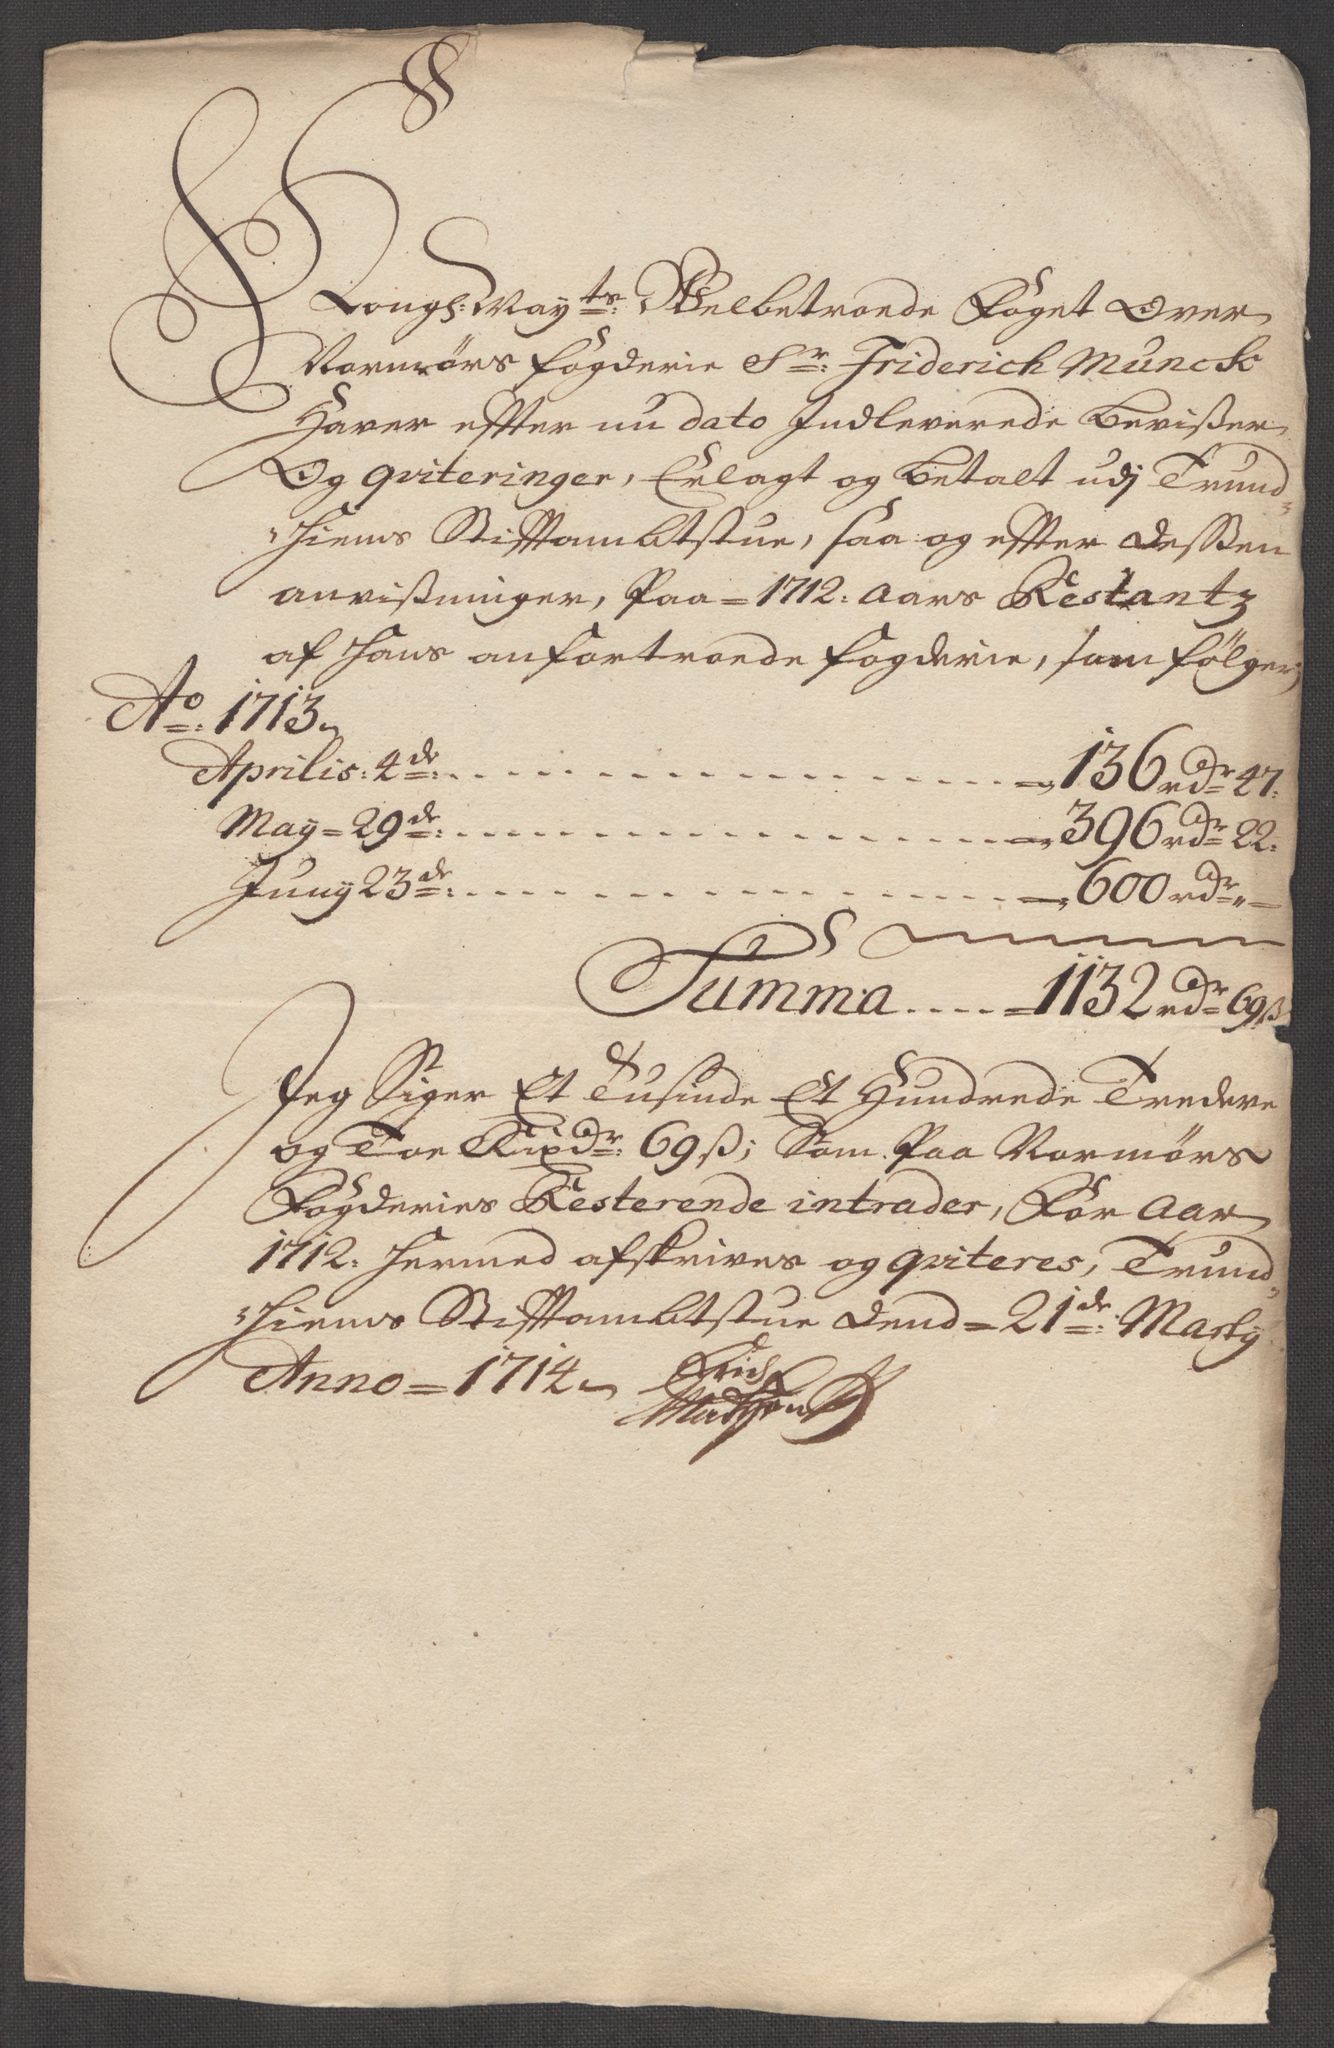 Kongl: May:ts Welbetroede Foget Over
Normørs fogderie Sr: Friderich Munck
Haver effter nu dato Indleverede beviszer
Og qviteringer, Erlagt og betalt udj Trund-
hiems Stifftambtstue, saa og effter deszen
anviszninger, Paa = 1712: aars Restantz
af hans anfortroede fogderie, som følger;
Ao: 1713
Aprilis: 4de: 136 rdr 47:
May = 29de: 396 rdr 22:
Juny 23de: 600 rdr „ —
Summa .... = 1132 rdr 69 ß
Jeg Siger Et Tusinde Et Hundrede Tredeve
og Toe Rixdr: 69 ß; Som Paa Normørs
Fogderies Resterende intrader, For Aar
1712: hermed afskrives og qviteres, Trund-
hiems Stifftambtstue dend = 21de: Marty
Anno = 1714
Erich